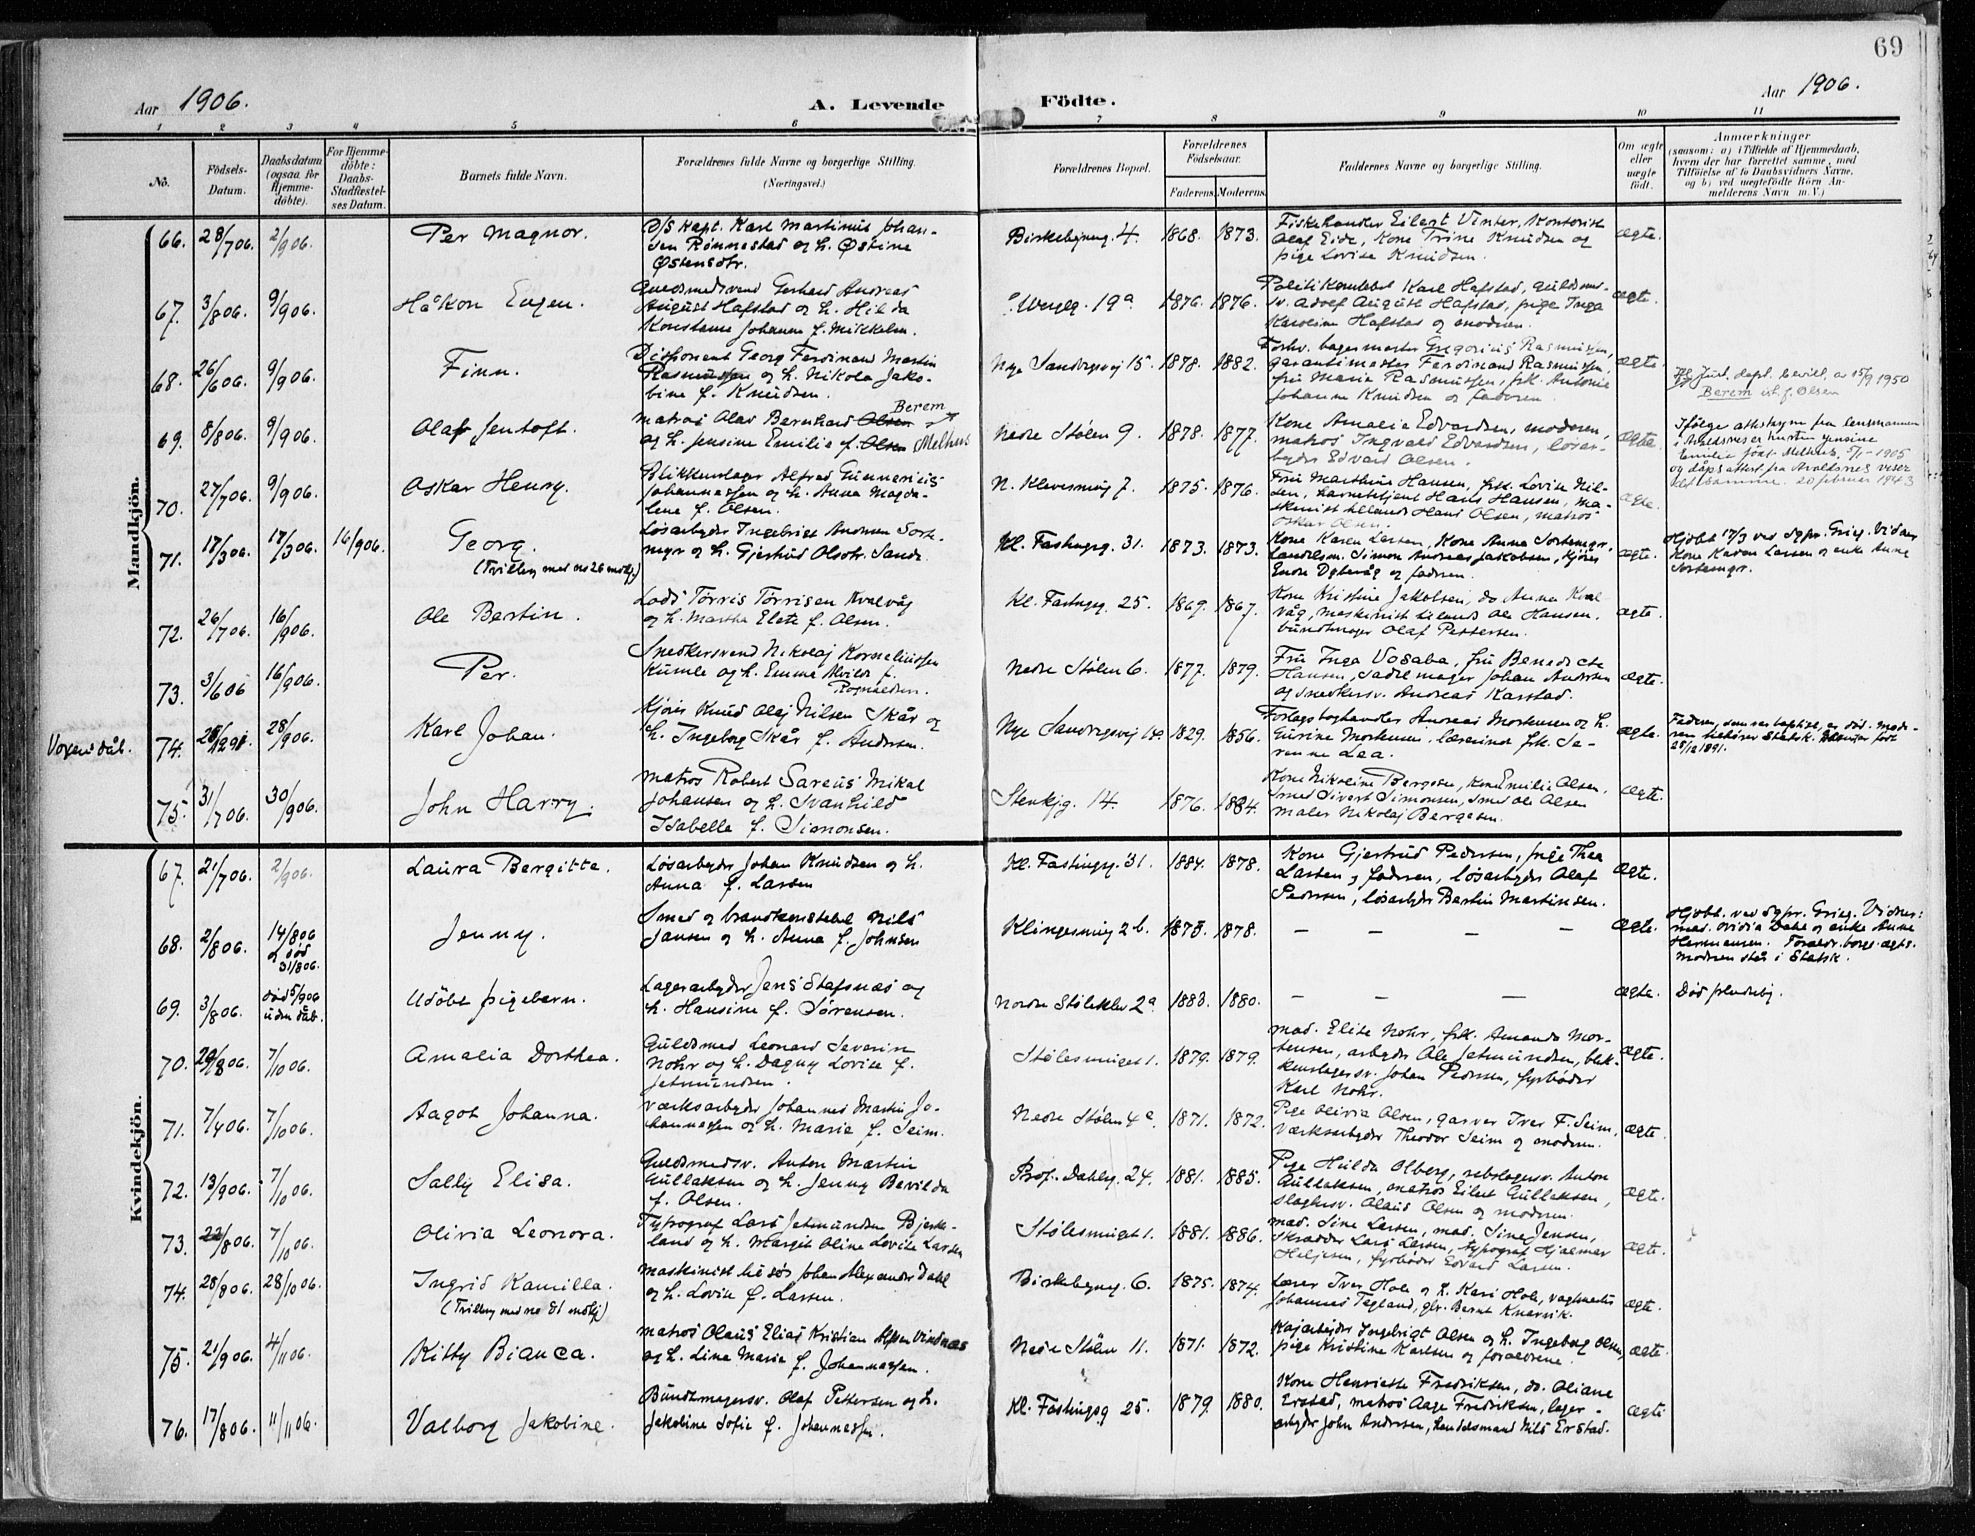 69
Aar 1906.
A. Levende
Födte.
Aar 1906.
1 2 3 4 5 6 7 8 9 10 11
No.
Födsels-Datum.
Daabsdatum (ogsaa for Hjemme-döbte).
For Hjemme-döbte: Daabs-Stadfæstel-ses Datum.
Barnets fulde Navn.
Forældrenes fulde Navne og borgerlige Stilling.
(Næringsvei.)
Forældrenes Bopæl.
Forældrenes Födselsaar.
Faderens. Moderens.
Faddernes Navne og borgerlige Stilling.
Om ægte eller uægte født.
Anmærkninger
(saasom: a) i Tilfælde af Hjemmedaab,
hvem der har forrettet samme, med
Tilföielse af to Daabsvidners Navne,
og b) ved uægtefödte Börn An-
melderens Navn m. V.)
Mandkjön.
66. 28/706. 2/906. Per Magnor.
D/S Kapt. Karl Martinus Johan-
sen Rönnestad og h. Østine
Østensdtr.
Birkebejnerg. 4. 1868. 1873.
Fiskehandler Eilert Vinter, Kontorist
Olaf Eide, Kone Trine Knudsen og
pige Lovise Knudsen.
ægte.
67. 3/806. 9/906. Håkon Eugen.
Guldsmedsvend Gerhard Andreas
August Hafstad og h. Hilda
Konstanse Johanna f. Mikkelsen.
19a 1876. 1876.
Politikonstabel Karl Hafstad, guldsmed-
sv. Adolf August Hafstad, pige Inga
Karoline Hafstad og moderen.
ægte.
68. 26/606. 9/906. Finn.
Disponent Georg Ferdinand Martin
Rasmussen og h. Nikola Jako-
bine f. Knudsen.
Nye Sandvigsvej 15. 1878. 1882.
Forhv. bagermester Gregorius Rasmussen,
garantimester Ferdinand Rasmussen,
fru Marie Rasmussen, frk. Antonie
Johanne Knudsen og faderen.
ægte.
69. 8/806. 9/906. Olaf Jentoft.
Berem
Matros Olav Bernhard Olsen
og h. Jensine Emilie f. Olsen Melhus
Nedre Stölen 9. 1878. 1877.
Kone Amalia Edvardsen, moderen,
matros Ingvald Edvardsen, lösar-
bejder Edvard Olsen.
ægte.
Ifl. Just. dept. bevill. av 15/9 1950
Berem ist. f. Olsen
Ifölge attest fra lensmannen
i Avaldsnes er hustru Jensine
Emilie född Melhus, 1905
og dåpsattest fra Avaldsnes viser
det samme. 20 februar 1943
70. 27/706. 9/906. Oskar Henry.
Blikkenslager Alfred Gunnerius
Johannessen og h. Anna Magda-
lene f. Olsen.
N. Kleivesmug 7. 1875. 1876.
Fru Marthine Hansen, frk. Lovise Nil-
sen, havnebetjent Hans Hansen, ma-
skinist tillands Hans Olsen, matros
Oskar Olsen.
ægte.
71. 17/306. 17/306. 16/906. Georg.
(Tvilling med no 26 )
Lösarbejder Ingebrigt Andersen Sorte-
myr og h. Gjertrud Olsdtr. Sande
Kl. Fastingsg. 31. 1873. 1873.
Kone Karen Larsen, Kone Anna Sortemyr,
Simon Andreas Jakobsen, kjörer
Endre Dybevåg og faderen.
ægte.
Hjdöbt 17/3 ved Sgpr. Grieg. Vidner
Kone Karen Larsen og enke Anne
Sortemyr.
72. 26/706. 16/906. Ole Bertin.
Lods Törris Törrisen Kvalvåg
og h. Martha Elete f. Olsen.
Kl. Fastingsg. 25. 1869. 1867.
Kone Kristine Jakobsen, do Anna Kval
våg, maskinist tillands Ole Hansen,
bundtmager Olaf Pettersen.
ægte.
73. 3/606 16/906. Per.
Snedkersvend Nikolaj Kornelius
Kumle og h. Emma Alvilde f.
Rognaldsen.
Nedre Stölen 6. 1877. 1879.
Fru Inga Vosaba, fru Benedicte
Hansen, sadelmager Johan Andersen
og snedkersv. Andreas Karstad.
ægte.
Voxen dåb.
74. 25/1291. 28/906. Karl Johan.
Kjörer Knud Olaj Nilsen Skår og
h. Ingeborg Skår f. Andersen.
Nye Sandvigsvej 1829. 1856.
Forlagsboghandler Andreas Mortensen og h.
Gurine Mortensen, lærerinde frk. Se-
renne Lea.
ægte.
Faderen, som var baptist, er död. Mode-
ren tilhörer Statsk. født
25/12 1891.
75. 31/706. 30/906. John Harry.
Matros Robert Sareus Mikal
Johansen og h. Svanhild
Isabelle f. Simonsen.
Stenkjg. 14. 1876. 1884.
Kone Nikoline Bergesen, Kone Emilie Olsen,
smed Sivert Simonsen, smed Ole Olsen
maler Nikolaj Bergesen.
ægte.
Kvindekjön.
67. 21/706. 2/906. Laura Bergitte.
Lösarbejder Johan Knudsen og h.
Anna f. Larsen
Kl. Fastingsg. 31. 1884. 1878.
Kone Gjertrud Pedersen, pige Thea
Larsen og faderen, lösarbejder Olaf
Pedersen, lösarbejder Bertin Martinsen.
ægte.
68. 2/806. 14/806 död 31/806. Jenny.
Smed og brandkonstabel Nils
Jansen og h. Anna f. Johnsen
Klingesmug 2b. 1878. 1878.
— — — —
ægte.
Hjdöbt. ved Sgpr. Grieg. Vidner:
mad. Ovidia Dahl og enke Anne
Hermansen. Forældr. borgl. ægts.
Moderen står i Statsk.
69. 3/806. död 5/906 uden dåb. Udöbt pigebarn.
Lagerarbejder Jens Stafsnæs og
h. Hansine f. Sörensen.
Nordre Stölekleiv 2a 1883. 1880.
— — —
ægte.
70. 29/806. 7/1006. Amalia Dorthea.
Guldsmed Leonard Severin
Nohr og h. Dagny Lovise f.
Jetmundsen.
Stölesmuget 1. 1879. 1879.
mad. Elise Nohr, frk. Amanda Mor-
tensen, arbejder Ole Jetmundsen, blik-
kenslagersv. Johan Pedersen, fyrböder
Karl Nohr.
ægte.
71. 7/406. 7/1006. Aagot Johanna.
Værksarbejder Johannes Martin Jo-
hannessen og h. Marie f. Seim.
Nedre Stölen 4a 1871. 1872.
Pige Olivia Olsen, garver Iver F. Seim,
Værksarbejder Theodor Seim og moderen.
ægte.
72. 13/906. 7/1006. Sally Elisa.
Guldsmedsv. Anton Martin
Gullaksen og h. Jenny Bevilda
f. Olsen.
Prof. Dahlsg. 24. 1881. 1885.
Pige Hulda Olberg, rebslagersv. Anton
Gullaksen, matros Eilert Gullaksen,
slagtersv. Olaus Olsen og moderen.
ægte.
73. 22/806. 7/1006. Olivia Leonora.
Typograf Lars Jetmundsen Bjerke-
land og h. Margit Oline Lovise Larsen
Stölesmuget 1. 1881. 1886.
mad. Sine Larsen, mad. Sine Jensen,
skrædder Lars Larsen, typograf Hjalmar
Heljesen, fyrböder Edvard Larsen.
ægte.
74. 28/806. 28/1006. Ingrid Kamilla.
(Tvilling med no 81 )
Maskinist tilsøs Johan Alexander Dahl
og h. Lovise f. Larsen.
Birkebejnerg. 6. 1875. 1874.
Lærer Iver Hole og h. Kari Hole, vagtmester
Johannes Tegland, Bernt Knarvik.
ægte.
75. 21/906. 4/1106. Kitty Bianca.
Matros Olaus Elias Kristian Vindnæs
og h. Lina Marie f. Johannessen.
Nedre Stölen 11. 1871. 1872.
Kajarbejder Ingebrigt Olsen og h. Ingeborg Olsen,
pige Kristine Karlsen og forældrene.
ægte.
76. 17/806. 11/1106. Valborg Jakobine.
Bundtmagersv. Olaf Pettersen og h.
Jakobine Sofie f. Johannessen.
Kl. Fastingsg 25. 1879. 1880.
Kone Henriette Fredriksen, do. Oliane
Erstad, matros Aage Fredriksen, lager-
arbejder John Andersen, handelsmand Nils Erstad.
ægte